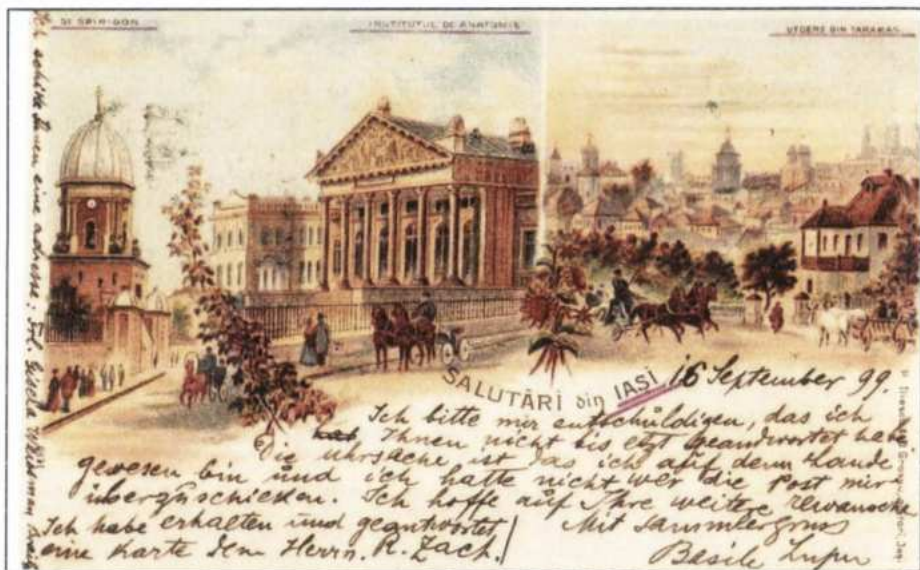 ST SPIRIDON
INSTITUTUL DE ANATOMIE
VEDERE DIN TARARAS
SALUTĂRI din IAȘI
16 September 99.
Ich bitte mir entschüldigen, das ich
hab Ihnen nicht bis etzt geandwortet habe
Die Uhrsache ist das ich auf dem Lande
gewesen bin und ich hatte nicht wer die Post mir
überzuschicken. Ich hoffe auf Ihre weitere
Mit Sammlergruss
Ich habe erhalten und geantwortet
eine Karte dem Herrn. R. Zach.
Basile Lupu
Ich schicke Ihnen eine adresse: Frl.